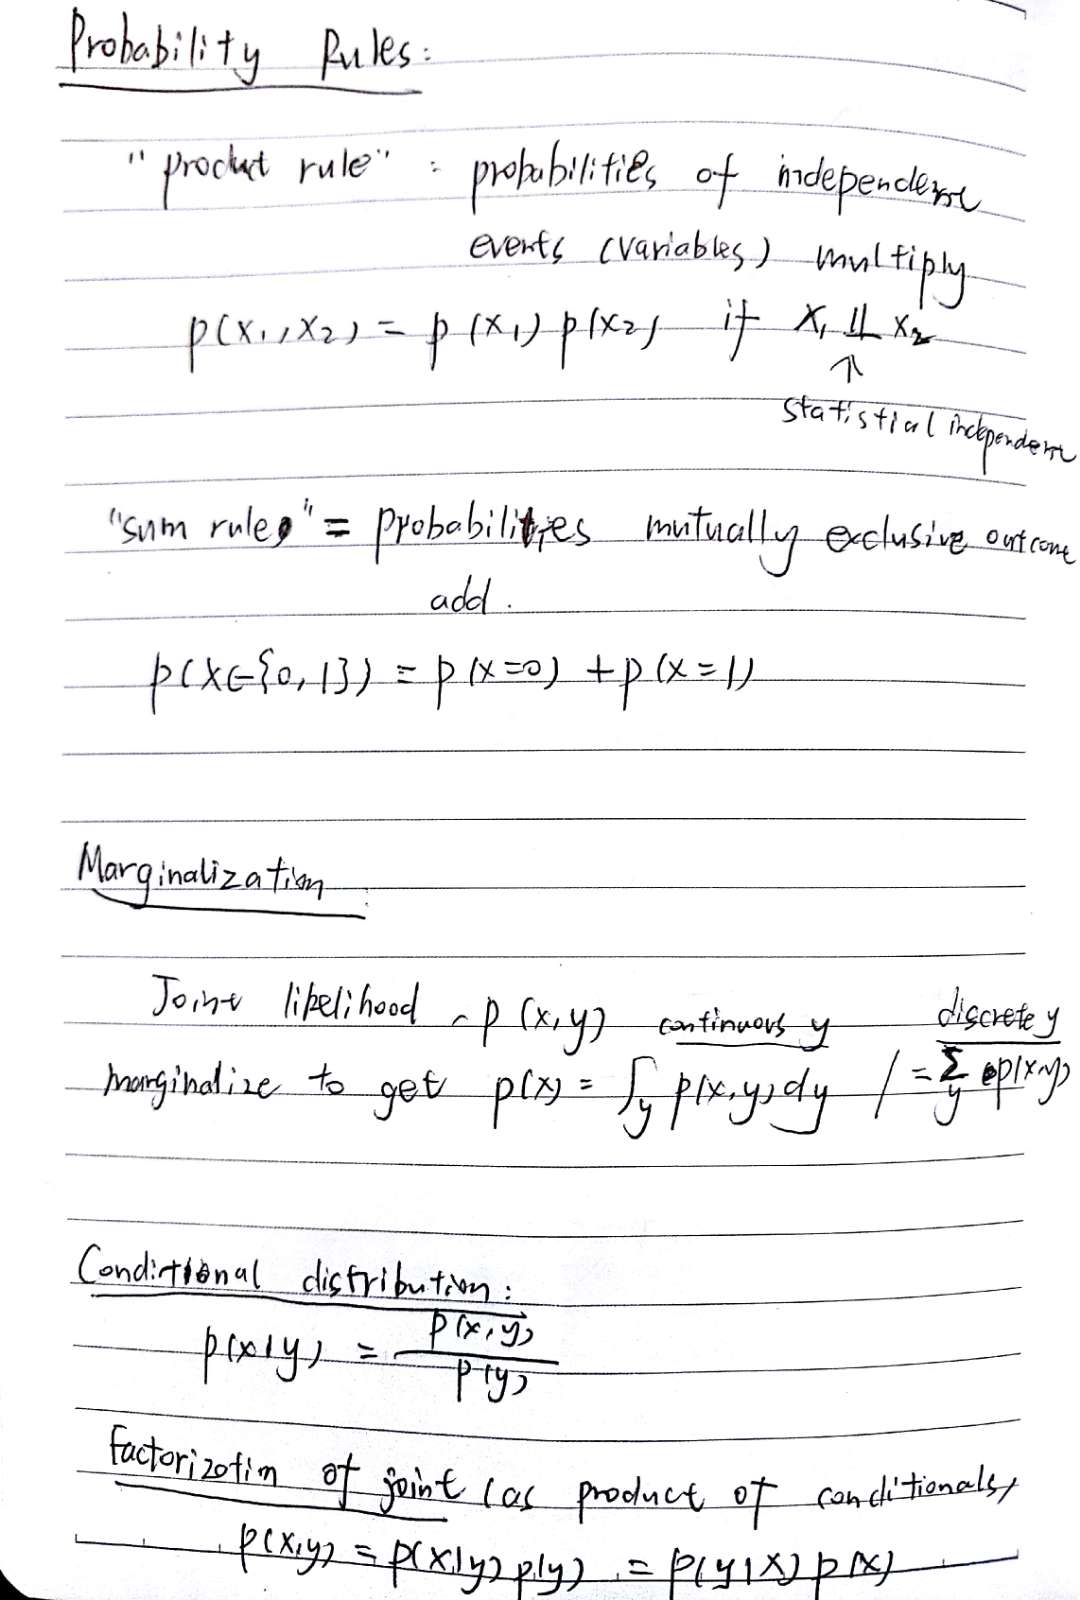 Probability Rules:
"product rule" : probabilities of independent
events (variables) multiply
p(x₁,x₂) = p(x₁) p(x₂) if x₁ ⫫ x₂
↑
statistial independent
"sum rule" = probabilities mutually exclusive outcome
add.
p(x∈{0,1}) = p(x=0) + p(x=1)
Marginalization
Joint likelihood ~ p(x,y) continuous y discrete y
marginalize to get p(x) = ∫_y p(x,y)dy / = Σ_y p(x,y)
Conditional distribution:
p(x|y) = p(x,y) / p(y)
factorization of joint (as product of conditionals)
p(x,y) = p(x|y) p(y) = p(y|x) p(x)